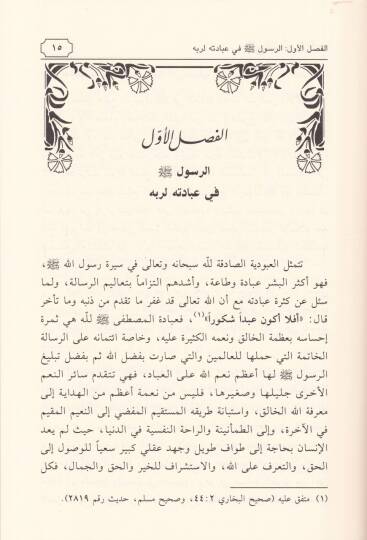 الفصل الأول: الرسول ﷺ في عبادته لربه
١٥
الفصل الأوّل
الرسول ﷺ
في عبادته لربه
تتمثل العبودية الصادقة للّه سبحانه وتعالى في سيرة رسول الله ﷺ،
فهو أكثر البشر عبادة وطاعة، وأشدهم التزاماً بتعاليم الرسالة، ولما
سئل عن كثرة عبادته مع أن الله تعالى قد غفر ما تقدم من ذنبه وما تأخر
قال: «أفلا أكون عبداً شكوراً»(١)، فعبادة المصطفى ﷺ للّه هي ثمرة
إحساسه بعظمة الخالق ونعمه الكثيرة عليه، وخاصة ائتمانه على الرسالة
الخاتمة التي حملها للعالمين والتي صارت بفضل الله ثم بفضل تبليغ
الرسول ﷺ لها أعظم نعم الله على العباد، فهي تتقدم سائر النعم
الأخرى جليلها وصغيرها، فليس من نعمة أعظم من الهداية إلى
معرفة الله الخالق، واستبانة طريقه المستقيم المفضي إلى النعيم المقيم
في الآخرة، وإلى الطمأنينة والراحة النفسية في الدنيا، حيث لم يعد
الإنسان بحاجة إلى طواف طويل وجهد عقلي كبير سعياً للوصول إلى
الحق، والتعرف على الله، والاستشراف للخير والحق والجمال، فكل
(١) متفق عليه (صحيح البخاري ٢: ٤٤، وصحيح مسلم، حديث رقم ٢٨١٩).